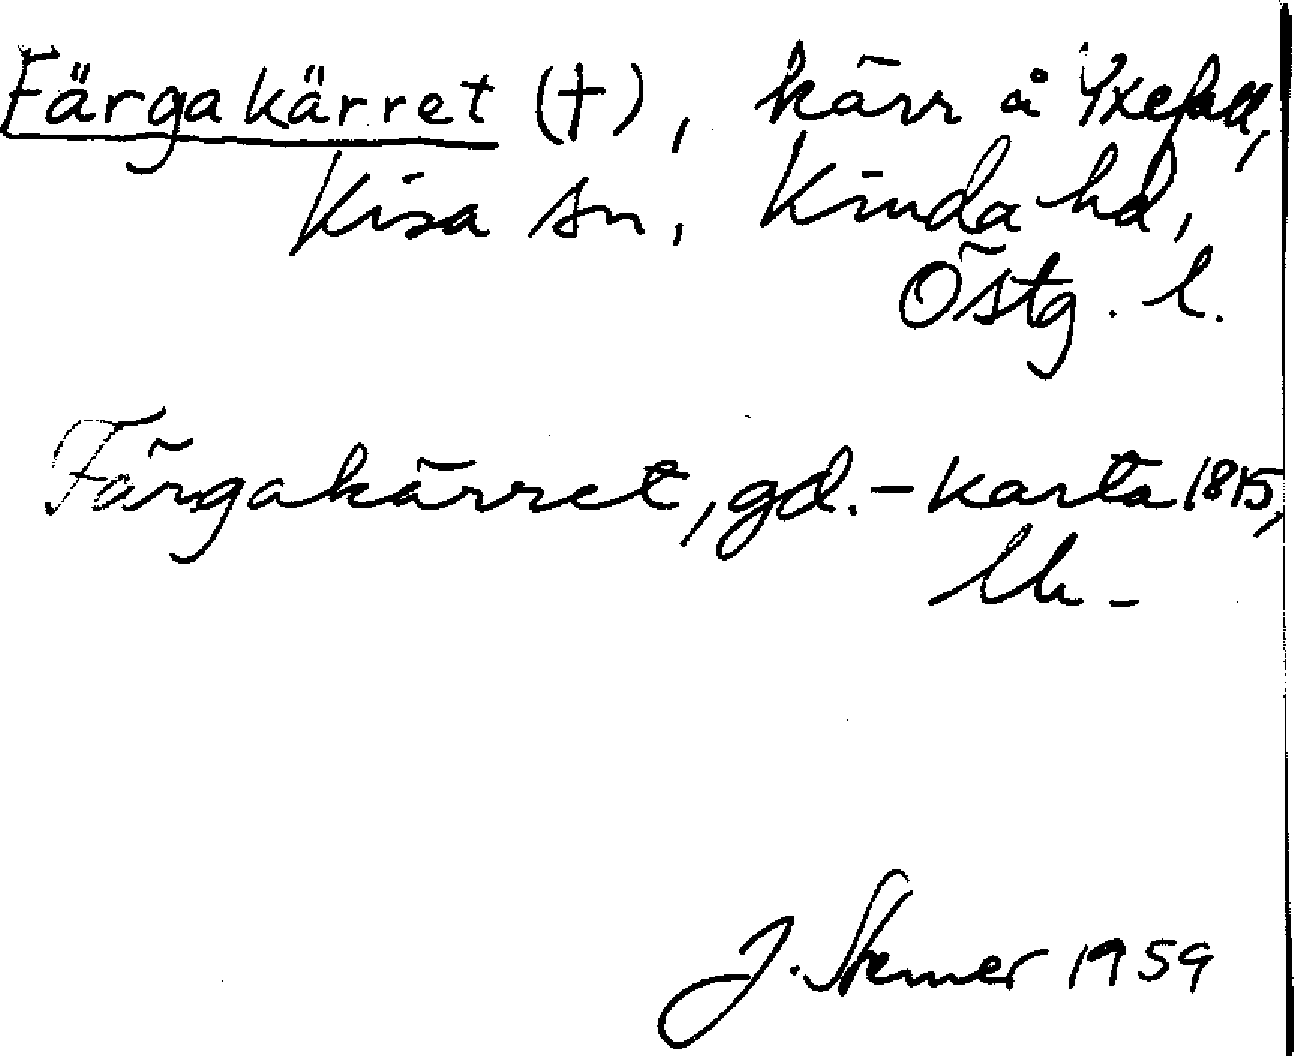 Färgakärret (†), kärr å Yxefall,
Kisa sn, Kinda hd,
Östg. l.
Färgakärret, gd. - karta 1815,
Uk -
J. Stemer 1959